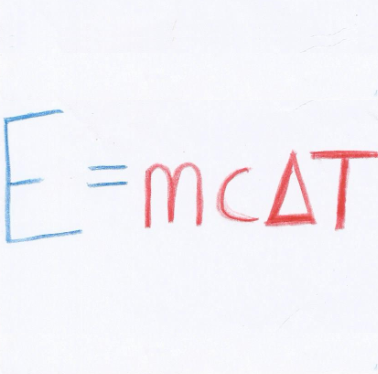 E=mcΔT